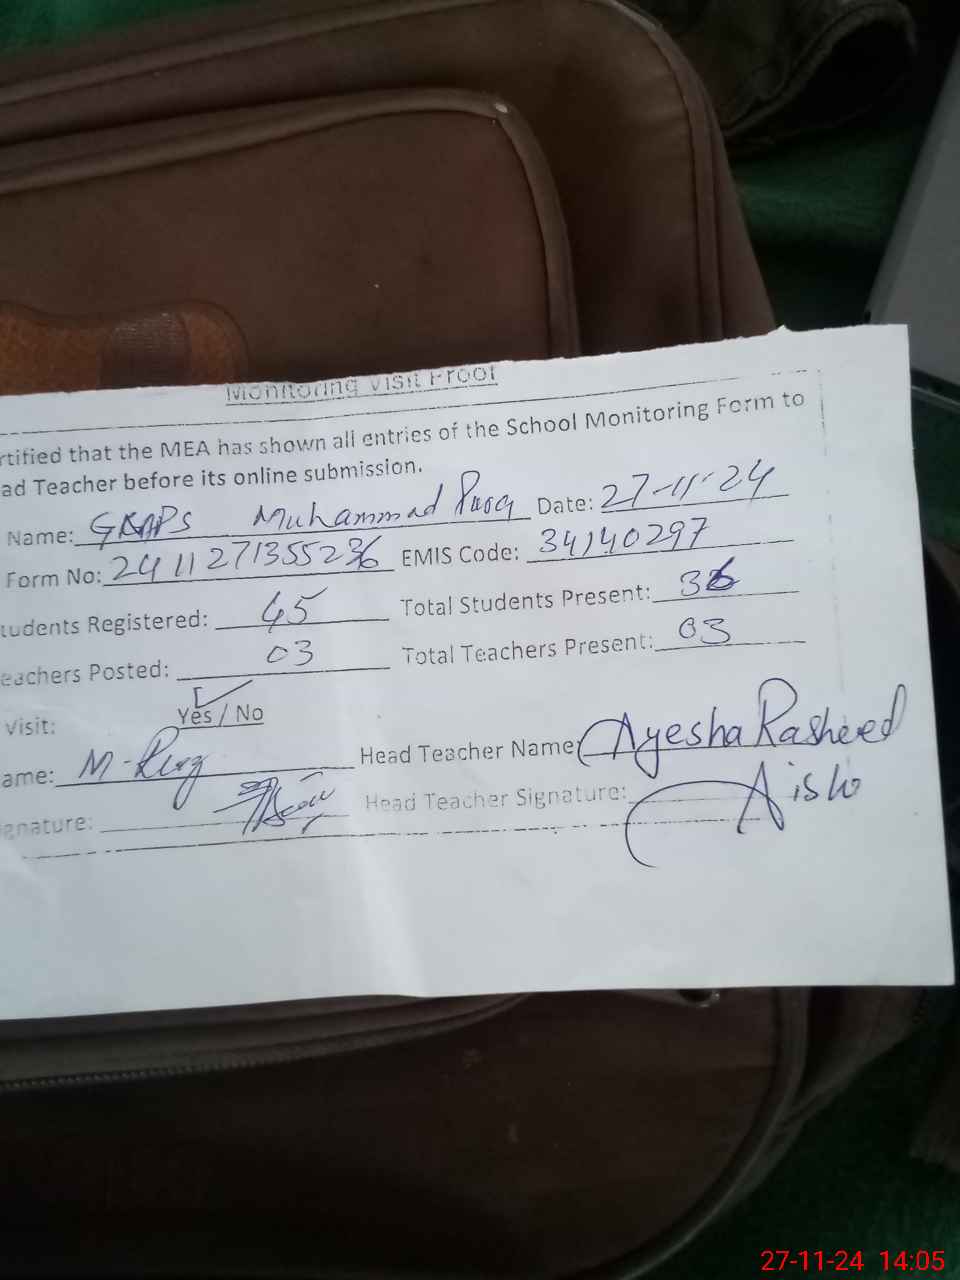 Monitoring Visit Proof
rtified that the MEA has shown all entries of the School Monitoring Form to
ad Teacher before its online submission.
Name: Muhammad Date: 27-11-24
Form No: EMIS Code: 34140297
tudents Registered: 45 Total Students Present:
eachers Posted: 03 Total Teachers Present: 03
Visit: Yes / No
ame: Head Teacher Name: Ayesha Rasheed
ignature: Head Teacher Signature:
27-11-24 14:05